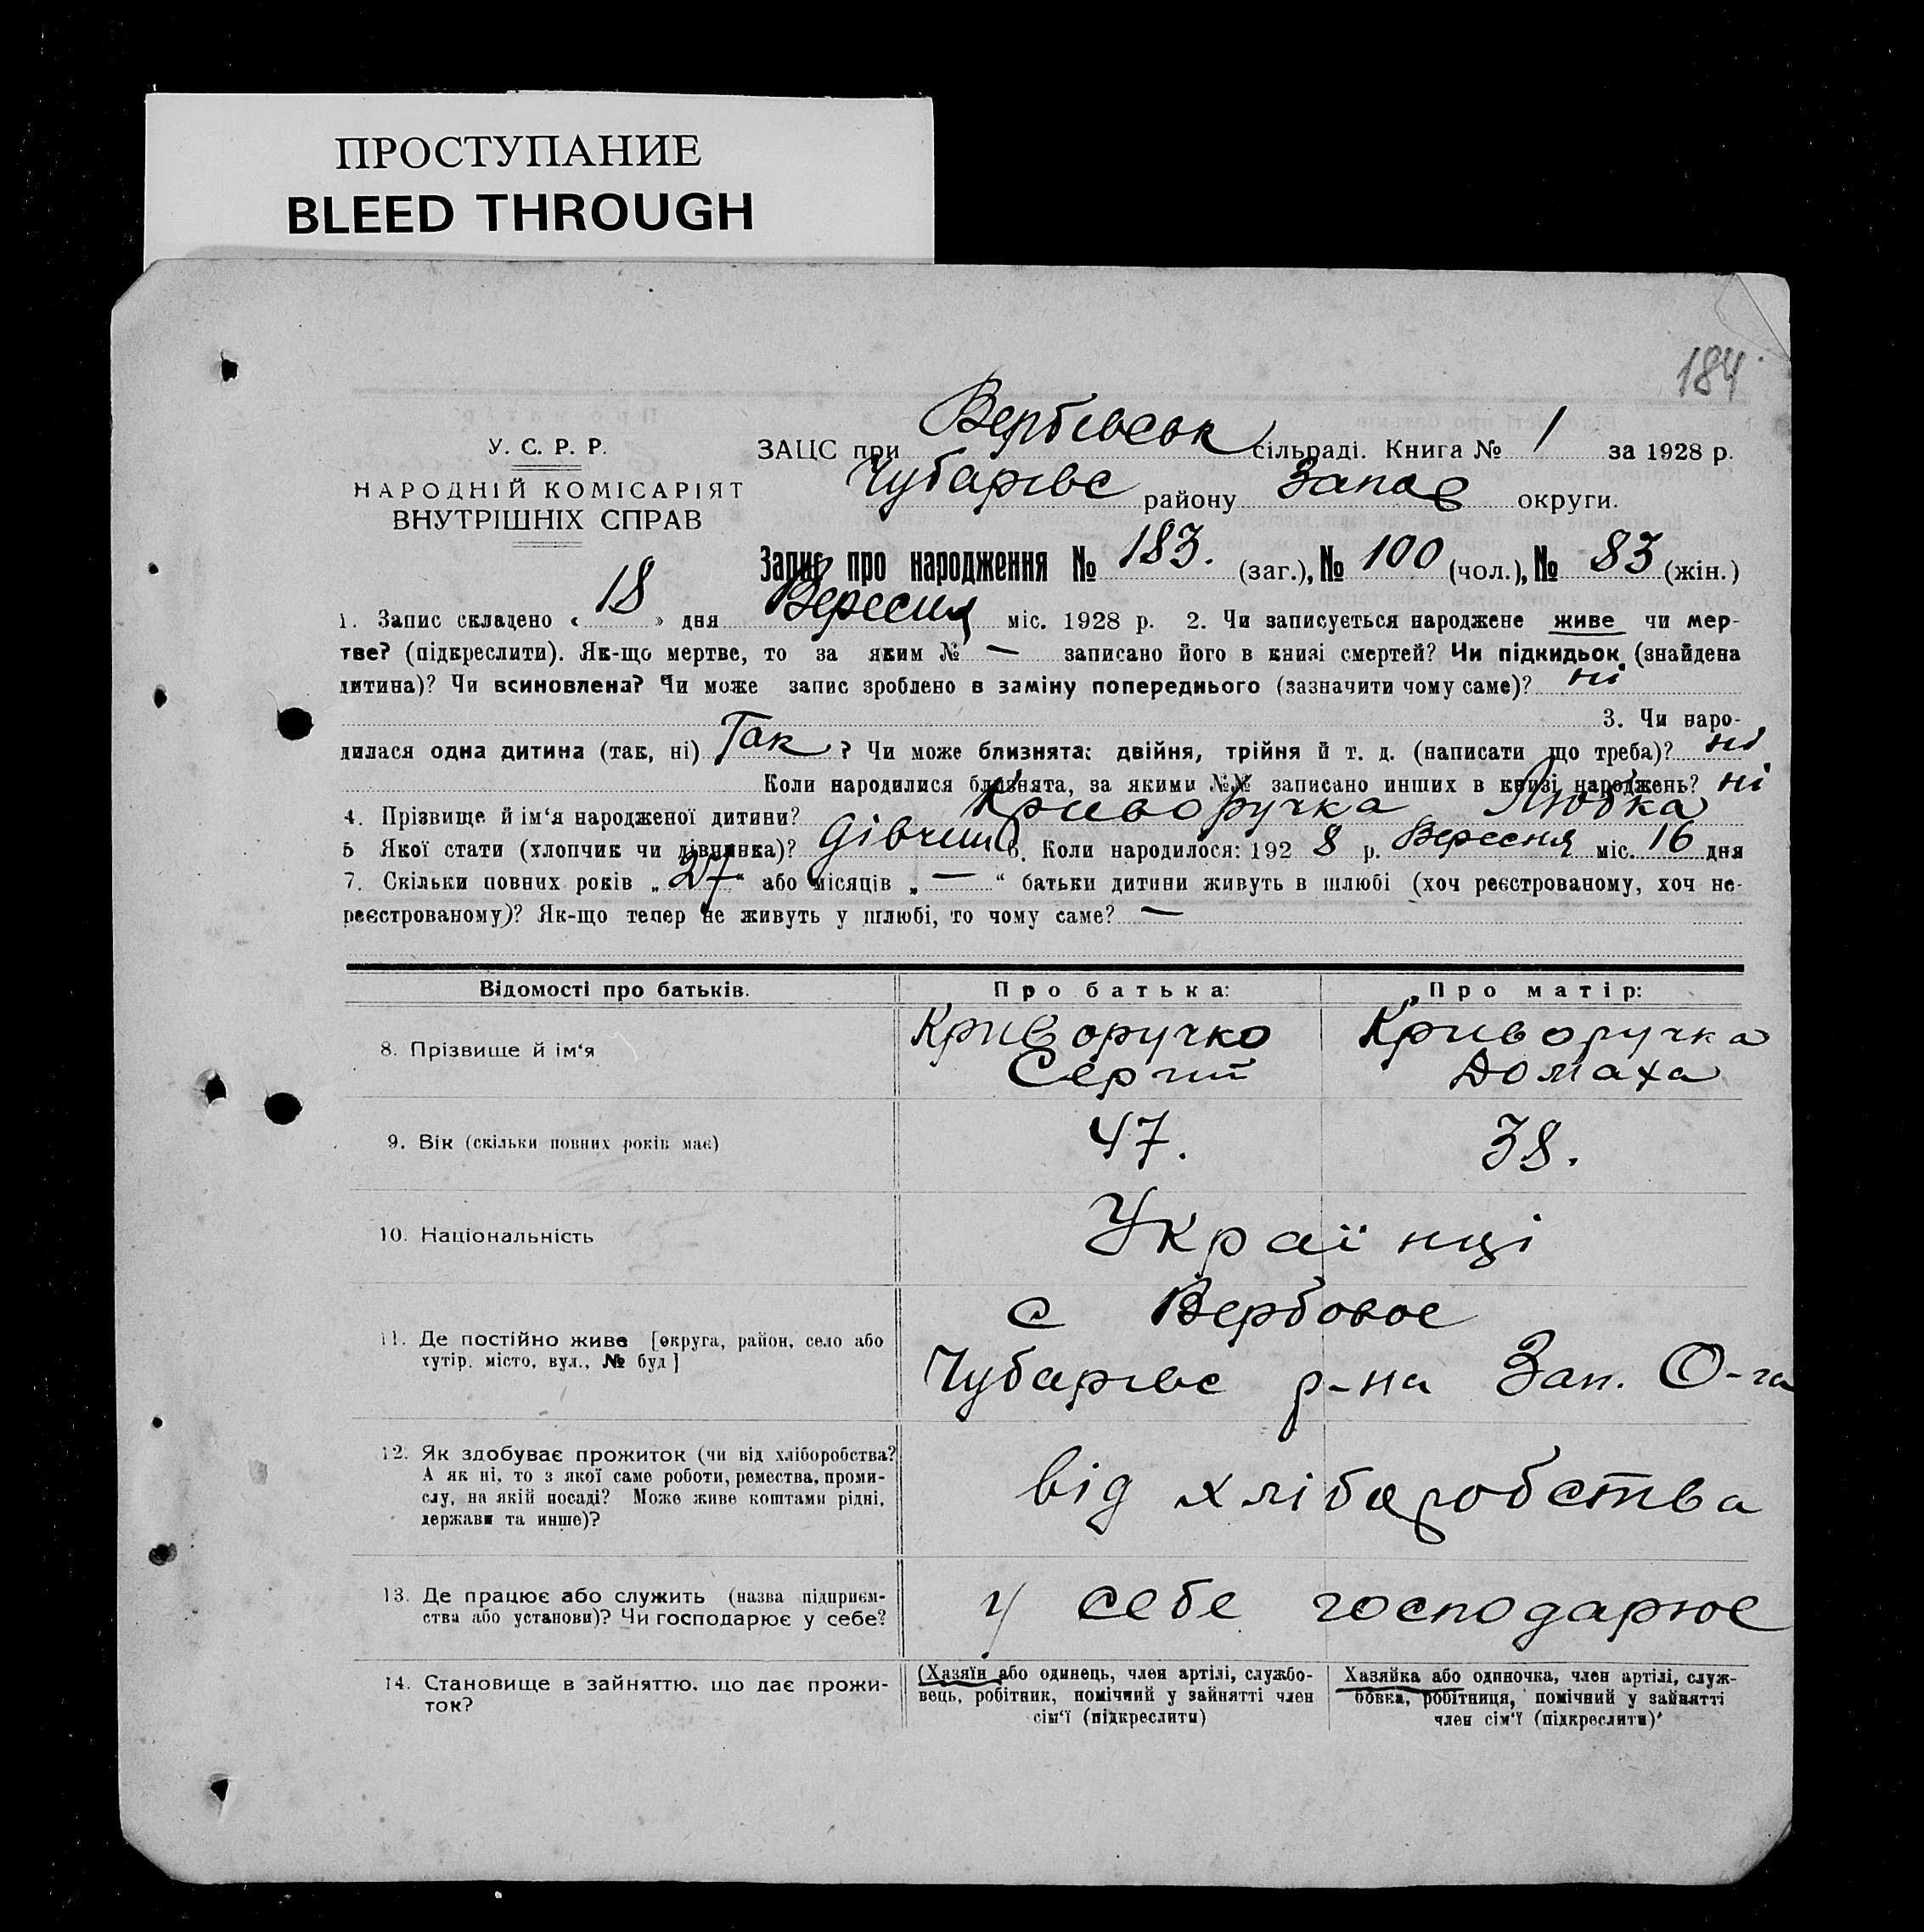 ПРОСТУПАНИЕ
BLEED THROUGH
184
У. С. Р. Р.
НАРОДНІЙ КОМІСАРІЯТ
ВНУТРІШНІХ СПРАВ
ЗАЦС при Вербівськ сільраді. Книга № 1 за 1928 р.
Чубарівс району Запов округи.
Запис про народження № 183. (заг.), № 100 (чол.), № 83 (жін.)
1. Запис складено « 18 » дня Вересня міс. 1928 р. 2. Чи записується народжене живе чи мер-
тве? (підкреслити). Як-що мертве, то за яким № — записано його в книзі смертей? Чи підкидьок (знайдена
дитина)? Чи всиновлена? Чи може запис зроблено в заміну попереднього (зазначити чому саме)? ні
3. Чи наро-
дилася одна дитина (так, ні) Так ? Чи може близнята: двійня, трійня й т. д. (написати що треба)? ні
Коли народилися близнята, за якими №№ записано инших в книзі народжень? ні
4. Прізвище й ім‘я народженої дитини? Криворучка Любка
5 Якої стати (хлопчик чи дівчинка)? Дівчин 6. Коли народилося: 192 8 р. Вересня міс. 16 дня
7. Скільки повних років „ 27 “ або місяців „ — “ батьки дитини живуть в шлюбі (хоч реєстрованому, хоч не-
реєстрованому)? Як-що тепер не живуть у шлюбі, то чому саме? —
Відомості про батьків. Про батька: Про матір:
8. Прізвище й ім‘я Криворучко Сергий Криворучка Домаха
9. Вік (скільки повних років має) 47. 38.
10. Національність Українці
11. Де постійно живе [округа, район, село або
хутір, місто, вул., № буд]
с Вербовое
Чубарівс р-на Зап. О-га
12. Як здобуває прожиток (чи від хліборобства?
А як ні, то з якої саме роботи, ремества, проми-
слу, на якій посаді? Може живе коштами рідні,
держави та инше)?
від хліборобства
13. Де працює або служить (назва підприєм-
ства або установи)? Чи господарює у себе?
у себе господарює
14. Становище в зайняттю, що дає прожи-
ток?
(Хазяїн або одинець, член артілі, службо-
вець, робітник, помічний у зайнятті член
сім‘ї (підкреслити)
Хазяйка або одиночка, член артілі, служ-
бовка, робітниця, помічний у зайнятті
член сім‘ї (підкреслити)